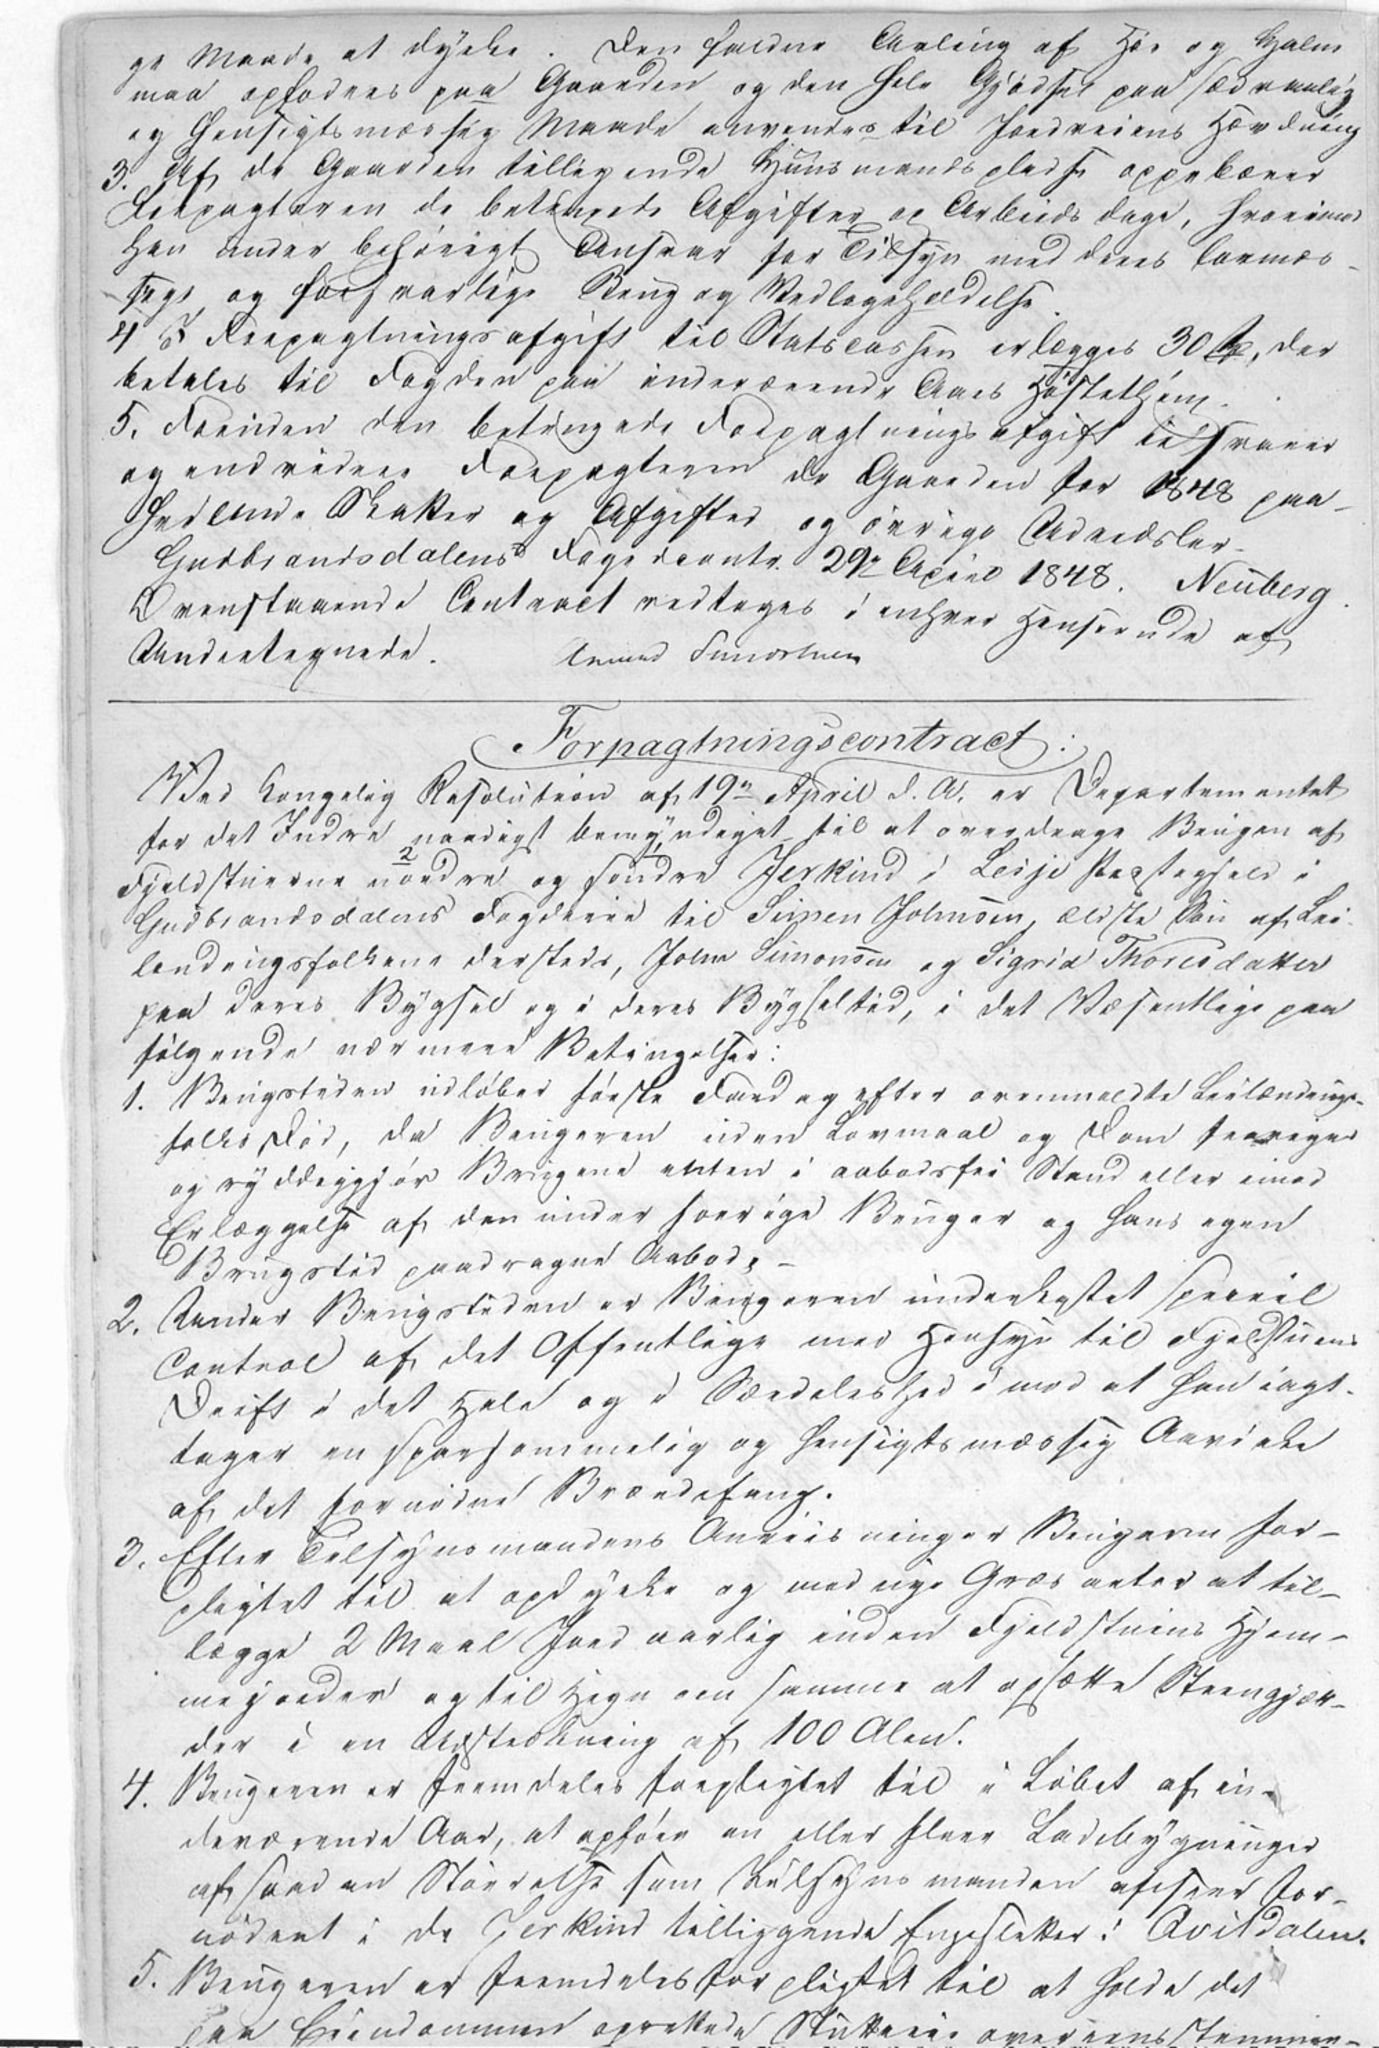 ge Maade at dyrke. Den faldne Avling af Høe og Halm
maa opfodres paa Gaarden og den hele Gjødsel paa sædvanlig
og hensigtsmæssig Maade anvendes til Jordveiens Hævdning
3. Af de Gaarden tilliggende Huusmandspladse oppebærer
Forpagteren de betingede Afgifter og Arbeidsdage, hvorimod
han under behørigt Ansvar fører Tilsyn med deres lovmæs-
sige og forsvarlige Brug og Vedligeholdelse.
4 I Forpagtningsafgift til Statscassen erlægges 30 , der
betales til Fogden paa indeværende Aars Høstething.
5. Foruden den betingede Forpagtningsafgift udsvarer
og endvidere Forpagteren de Gaarden for 1848 paa-
hvilende Skatter og Afgifter og øvrige Udredsler.
Gudbrandsdalens Fogedcontr. 29de April 1848. Neuberg.
Ovenstaaende Contract vedtages i enhver Henseende af
Undertegnede. Simonsen
Forpagtningscontract:
Ved kongelig Resolution af 19de April d. A. er Departementet
for det Indre naadigst bemyndiget til at overdrage Brugen af
Fjeldstuerne nordre og søndre Jerkind i Lesje Præstegjeld i
Gudbrandsdalens Fogderie til Simen Johnsen, ældste Søn af Lei-
lændingsfolkene dersteds, John Simonsen og Sigrid Thoresdatter
paa deres Bygsel og i deres Bygseltid, i det Væsentlige paa
følgende nærmere Betingelser:
1. Brugstiden udløber første Fardag efter ovenmeldte Leilændings-
folks Død, da Brugeren uden Lovmaal og Dom fraviger
og ryddeggjør Brugene enten i aabodsfri Stand eller imod
Erlæggelse af den under forrige Bruger og hans egen
Brugstid paadragne Aabod. -
2. Under Brugstiden er Brugeren underkastet speciel
Control af det Offentlige med Hensyn til Fjeldstuens
Drift i det Hele og i Særdeleshed imod at han iagt-
tager en sparsommelig og hensigtsmæssig Aavirke
af det fornødne Brændefang.
3. Efter Tilsynsmandens Anviisning er Brugeren for-
pligtet til at opdyrke og med nye Græsarter at til-
lægge 2 Maal Jord aarlig inden Fjeldstuens Hjem-
mejorder og til Hegn om samme at opsætte Steengjær-
der i en Udstrekning af 100 Alen.
4. Brugeren er fremdeles forpligtet til i Løbet af in-
deværende Aar, at opføre en eller flere Ladebygninger
af saadan Størrelse som Tilsynsmanden afiseer for-
nødent i de Jerkind tilliggende Engesletter i Avildalen.
5. Brugeren er fremdeles forpligtet til at holde det
paa Eiendommen oprettede Stutterie overeensstemmen-